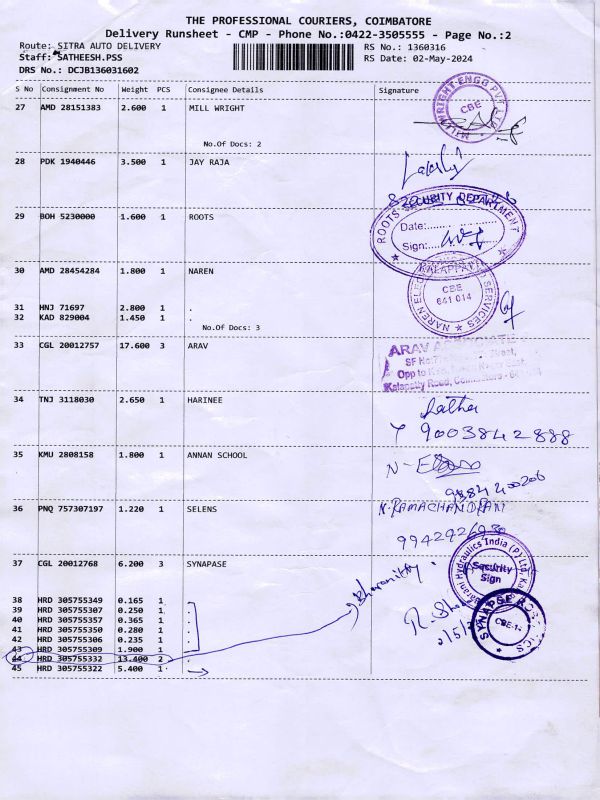 THE PROFESSIONAL COURIERS, COIMBATORE
Delivery Runsheet - CMP - Phone No.:0422-3505555 - Page No.:2
Route: SITRA AUTO DELIVERY RS No.: 1360316
Staff: SATHEESH.PSS RS Date: 02-May-2024
DRS No.: DCJB136031602
S No Consignment No Weight PCS Consignee Details Signature
27 AMD 28151383 2.600 1 MILL WRIGHT
MILLWRIGHT-ENGG PVT LTD
CBE
No.Of Docs: 2
28 PDK 1940446 3.500 1 JAY RAJA
29 BOH 5230000 1.600 1 ROOTS
ROOTS SECURITY DEPARTMENT
Date:
Sign:
30 AMD 28454284 1.800 1 NAREN
KALAPPATTI
CBE
641 014
SERVICES
31 HNJ 71697 2.800 1 .
32 KAD 829004 1.450 1 .
No.Of Docs: 3
33 CGL 20012757 17.600 3 ARAV
ARAV
SF No:
Opp to
Kalapatty Road, Coimbatore
34 TNJ 3118030 2.650 1 HARINEE
9003842888
35 KMU 2808158 1.800 1 ANNAN SCHOOL
36 PNQ 757307197 1.220 1 SELENS
RAMACHANDRAN
37 CGL 20012768 6.200 3 SYNAPASE
Hydraulics India (P) Ltd
Security
Sign
38 HRD 305755349 0.165 1 .
39 HRD 305755307 0.250 1 .
40 HRD 305755357 0.365 1 .
41 HRD 305755350 0.280 1 .
42 HRD 305755306 0.235 1 .
43 HRD 305755309 1.900 1 .
44 HRD 305755332 13.400 2 .
45 HRD 305755322 5.400 1 .
SYNAPSE